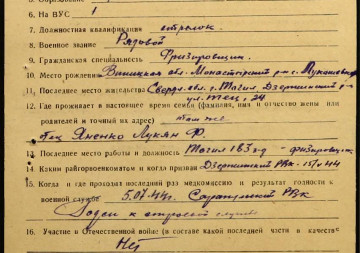 6. На ВУС 1
7. Должностная квалификация стрелок
8. Военное звание Рядовой
9. Гражданская специальность Фрезеровщик
10. Место рождения Винницкая обл. Монастырский р-н с.
11. Последнее место жительства Сверд. обл. г. Тагил Дзержинский р-н
ул. 24
12. Где проживает в настоящее время семья (фамилия, имя и отчество жены или
родителей и точный их адрес) там же
Яненко Лукян Ф.
13. Последнее место работы и должность Тагил 183 з-д - фрезеровщик
14. Каким райгорвоенкоматом и когда призван Дзержинский РВК - 15/V 44
15. Когда и где проходил последний раз медкомиссию и результат годности к
военной службе 5.07.44 г. РВК
Годен к строевой службе
16. Участие в Отечественной войне (в составе какой последней части в качестве
Нет